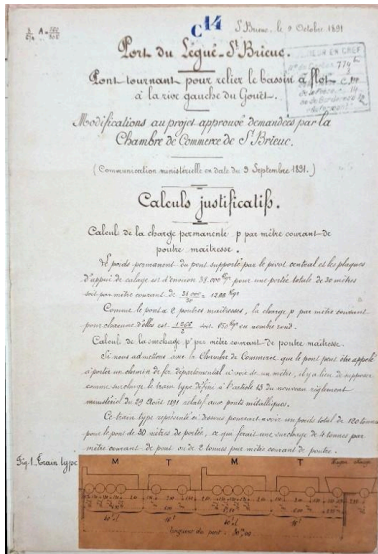 C 14
St Brieuc, le 9 Octobre 1891
Port du Légué-St Brieuc.
Pont tournant pour relier le bassin à flot
à la rive gauche du Gouët.
Modifications au projet approuvé demandées par la
Chambre de Commerce de St Brieuc.
(Communication ministérielle en date du 9 Septembre 1891.)
Calculs justificatifs.
Calcul de la charge permanente p par mètre courant de
poutre maîtresse.
Le poids permanent du pont supporté par le pivot central et les plaques
d'appui de calage est d'environ 38.000 Kgs pour une portée totale de 30 mètres
soit par mètre courant de
Comme le pont a 2 poutres maîtresses, la charge p par mètre courant
pour chacune d'elles est en nombre rond.
Calcul de la surcharge p' par mètre courant de poutre maîtresse.
Si nous admettons avec la Chambre de Commerce, que le pont peut être appelé
à porter un chemin de fer départemental à voie de un mètre, il y a lieu de supposer
comme surcharge le train type défini à l'article 13 du nouveau règlement
ministériel du 29 Août 1891 relatif aux ponts métalliques.
Ce train type représenté ci-dessous pourrait avoir un poids total de 120 tonnes
pour le pont de 30 mètres de portée, ce qui ferait une surcharge de 4 tonnes par
mètre courant de pont ou de 2 tonnes par mètre courant de poutre.
Fig. 1. Train type
M T M T
longueur du pont = 30m00